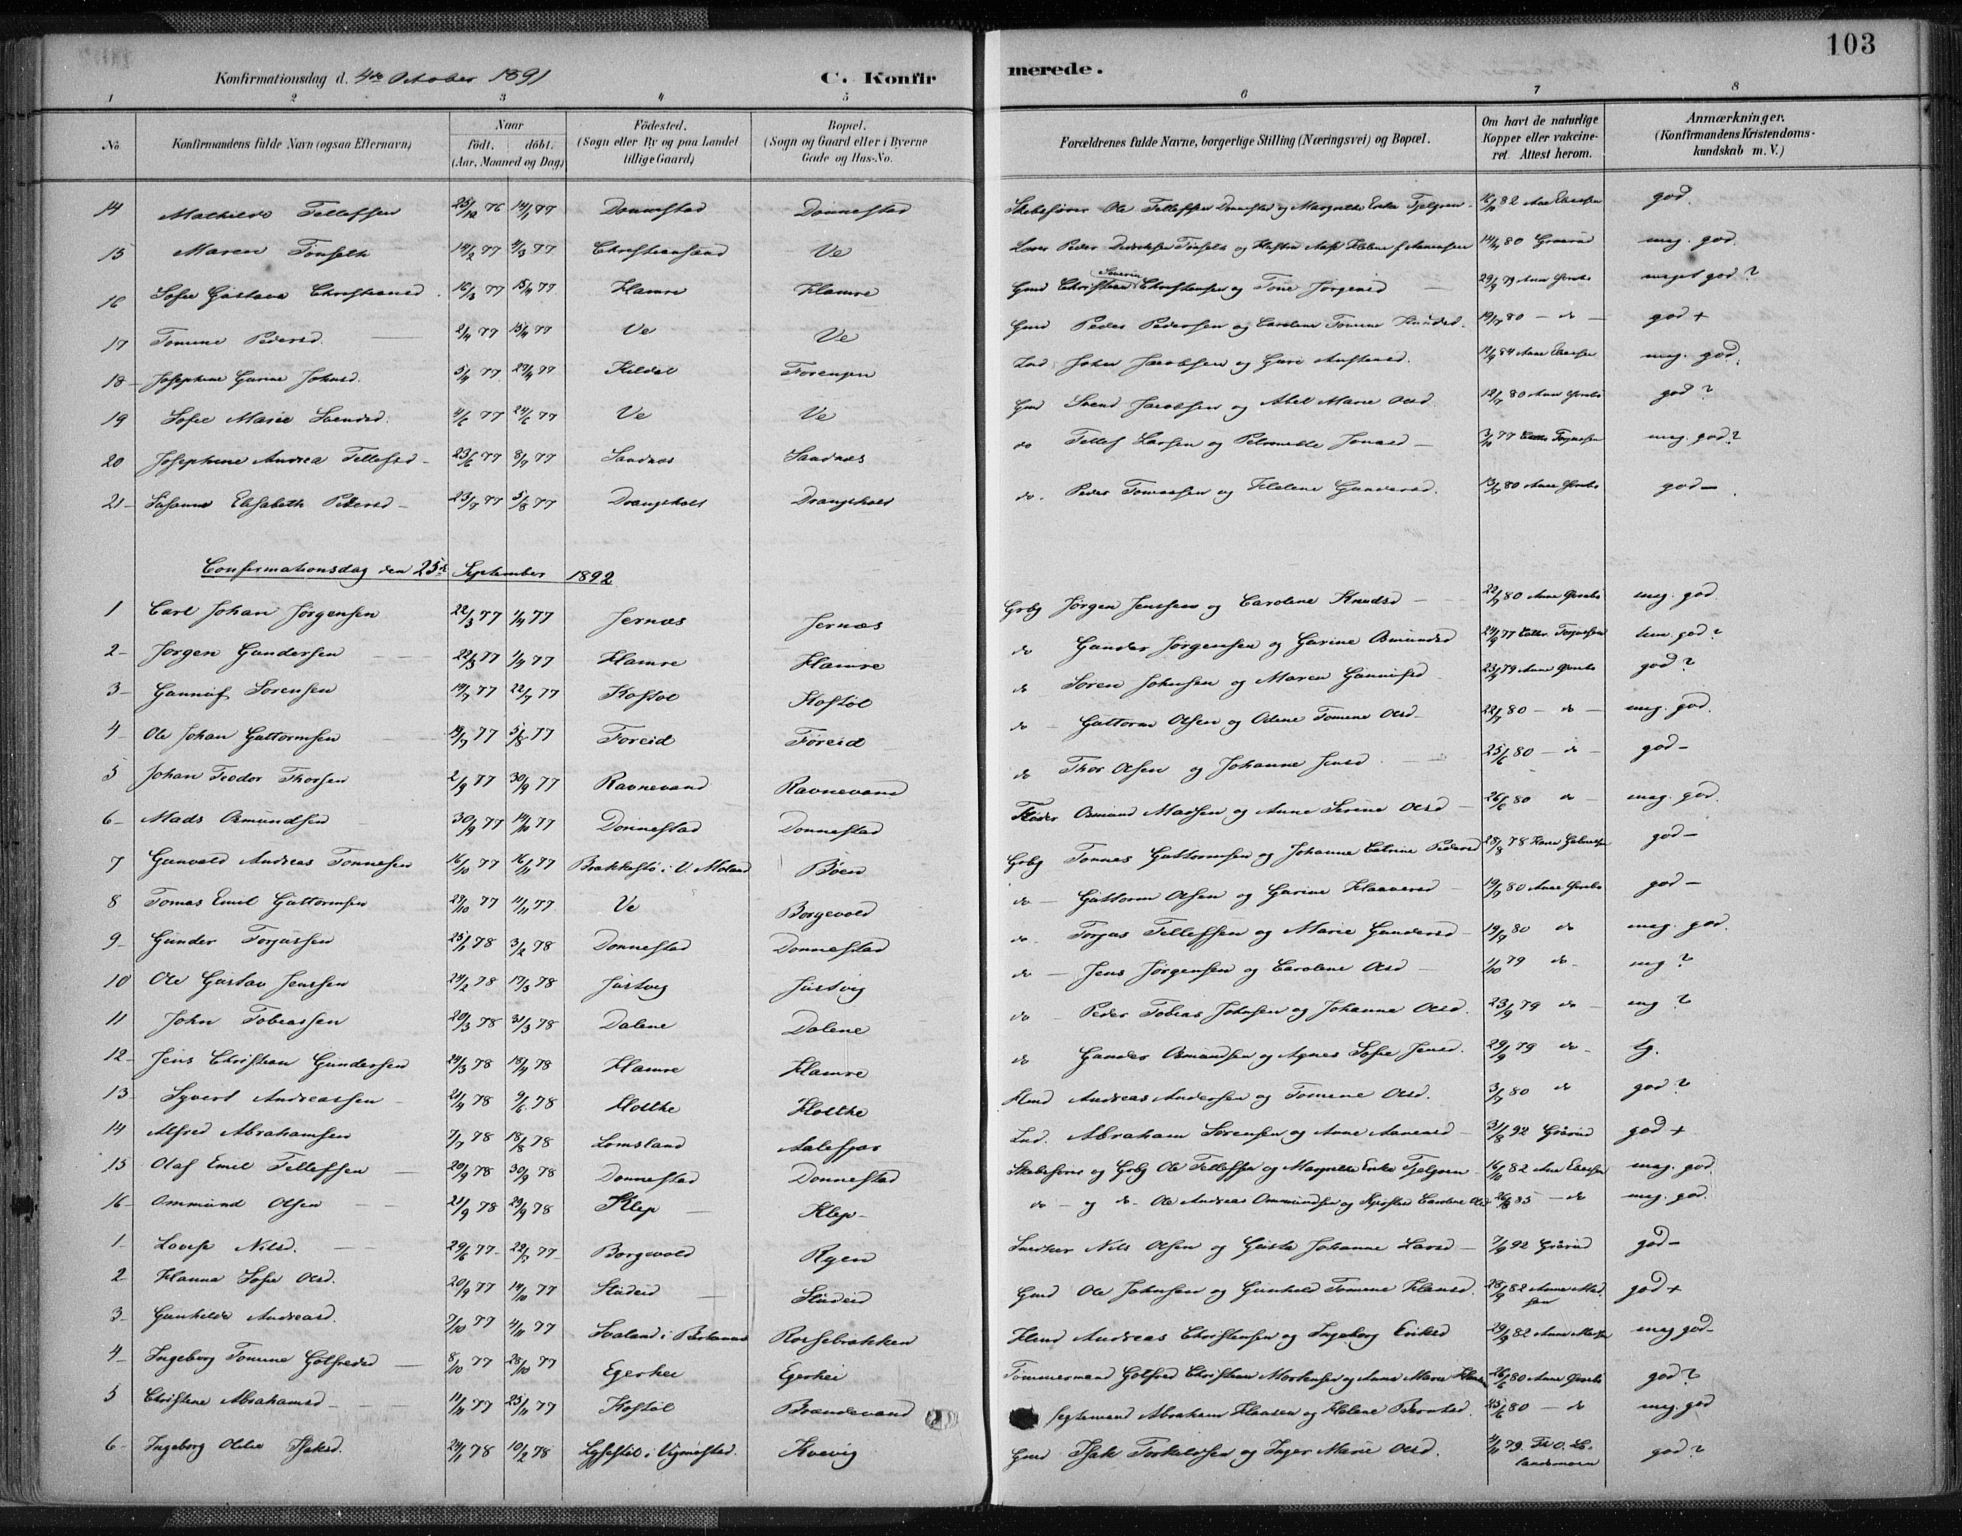 103
Konfirmationsdag d. 4de October 1891 C. Konfirmerede.
1 2 3 4 5 6 7 8
No. Konfirmandens fulde Navn (ogsaa Efternavn) Naar födt. döbt. (Aar, Maaned og Dag) Födested. (Sogn eller By og paa Landet tillige Gaard) Bopæl. (Sogn og Gaard eller i Byerne Gade og Hus-No. Forældrenes fulde Navne, borgerlige Stilling (Næringsvei) og Bopæl. Om havt de naturlige Kopper eller vakcineret. Attest herom. Anmærkninger. (Konfirmandens Kristendomskundskab m. V.)
14 Mathilde Tellefsen 25/12 76 14/1 77 Donnestad Donnestad Ole Tellefsen Donnestad og Margrethe 16/10 82 god.
15 Maren 14/2 77 4/3 77 Christiansand Ve Peder og 14/4 80 meg. god.
16 Sofie Gustava Christiansd. 16/3 77 15/4 77 Hamre Hamre Gmd Christian Severin Christensen og Tone Jørgensd 29/9 79 meget god?
17 Tomine Pedersd. 2/4 77 15/4 77 Ve Ve Gmd Peder Pedersen og Carolene Tomine Knudsd. 19/7 80 - do - god +
18 Josephine Garine Johnsd. 5/4 77 29/4 77 Kildal Forengen John Jacobsen og Guri 12/9 84 meg. god.
19 Sofie Marie Svendsd. 4/6 77 24/6 77 Ve Ve Gmd Svend Jacobsen og Abel Marie Olsd 12/7 80 god?
20 Josephine Andrea Tellefsd - 23/6 77 8/7 77 Sandnæs Sandnæs do Tellef Larsen og Petronelle Jonasd - 3/10 77 meg. god?
21 Susanne Elisabeth Pedersd - 23/7 77 5/8 77 Drangsholt Drangsholt do. Peder Tomassen og Helene Gundersd. 13/7 80 god -
Confirmationsdag den 25de September 1892
1 Carl Johan Jørgensen 22/3 77 1/4 77 Jernæs Jernæs Grbg Jørgen Jenssen og Carolene Knudsd - 22/7 80 meg. god
2 Jørgen Gundersen 22/3 77 1/4 77 Hamre Hamre do Gunder Jørgensen og Garine Osmundsd 24/9 77 god?
3 Gunnuf Sørensen 14/7 77 22/7 77 Kostøl Kostøl do Søren Johnsen og Maren Gunnufsd 23/9 79 god?
4 Ole Johan Guttormsen 14/7 77 5/8 77 Foreid Foreid do Guttorm Olsen og Odene Tomene Olsd 22/7 80 - do - meg. god.
5 Johan Teodor Thorsen 2/9 77 30/9 77 Ravnevand Ravnevand do Thor Olsen og Johanne Jensd 25/6 80 - do - god -
6 Mads Osmundsen 30/9 77 14/10 77 Donnestad Donnestad Osmund Madsen og Anne Serine Olsd - 26/6 80 do - meg. god.
7 Gunvald Andreas Tonnesen 16/10 77 16/11 77 Brækkestø i V. Moland Bøen Grbg Tonnes Guttormsen og Johanne Catrine Pedersd 28/8 78 god -
8 Tomas Emil Guttormsen 29/10 77 11/11 77 Ve Borgevold do - Guttorm Olsen og Garine Haaversd - 19/7 80 god -
9 Gunder Torjussen 25/1 78 3/2 78 Donnestad Donnestad do. Torjus Tellefsen og Marie Gundersd - 19/7 80 do meg. god.
10 Ole Gustav Jenssen 24/2 78 17/3 78 Justvig Justvig do - Jens Jørgensen og Carolene Olsd - 1/10 79 do - meg ?
11 John Tobiassen 20/3 78 31/3 78 Dalene Dalene do - Peder Tobias Johnsen og Johanne Olsd. 23/9 79 do - mg ?
12 Jens Christian Gundersen 24/3 78 18/4 78 Hamre Hamre do Gunder Osmundsen og Agnes Sofie Jensd. 29/9 79 do - tg.
13 Syvert Andreassen 21/4 78 9/6 78 Holthe Holthe Hmd Andreas Andersen og Tomene Olsd. 3/7 80 do god?
14 Alfred Abrahamsen 7/7 78 18/8 78 Lomsland Aalefjær Lnd. Abraham Sørensen og Anne Aanensd - 31/8 92 god +
15 Olaf Emil Tellefsen 20/9 78 30/9 78 Donnestad Donnestad og Grbg Ole Tellefsen og Margrethe 16/10 82 meg. god.
16 Ommund Olsen 21/9 78 29/9 78 Klep Klep - do - og do - Ole Andreas Ommundsen og Carolene Olsd 26/8 85 - do meg. god.
1 Lovise Nilsd. 29/6 77 - 22/7 77 Borgevold Ryen Nils Olsen og Johanne Larsd - 7/9 92 god -
2 Hanna Sofie Olsd. 20/9 77 14/10 77 Studeid Studeid Gmd Ole Johnsen og Gunhild Tomene Hansd. 28/9 82 god +
3 Gunhilde Andreasd. 7/10 77 4/11 77 Svaland i Birkenes Rossebrækken Hmd Andreas Christensen og Ingeborg Eriksd 29/9 82 meg god -
4 Ingeborg Tomine Golfredsd 8/10 77 28/10 77 Egerhei Egerhei Tømmermand Golfred Christian Mortensen og Anne Marie 26/6 80 god?
5 Christine Abrahamsd - 11/11 77 25/11 77 Kostøl Brændevand Abraham Hansen og Helene Berntsd. 25/6 80 - do meg. god
6 Ingeborg Isaksd. 24/1 78 10/2 78 i Vigmostad. Kvevig Gmd Isak Torkildsen og Inger Marie Olsd. 79. god?